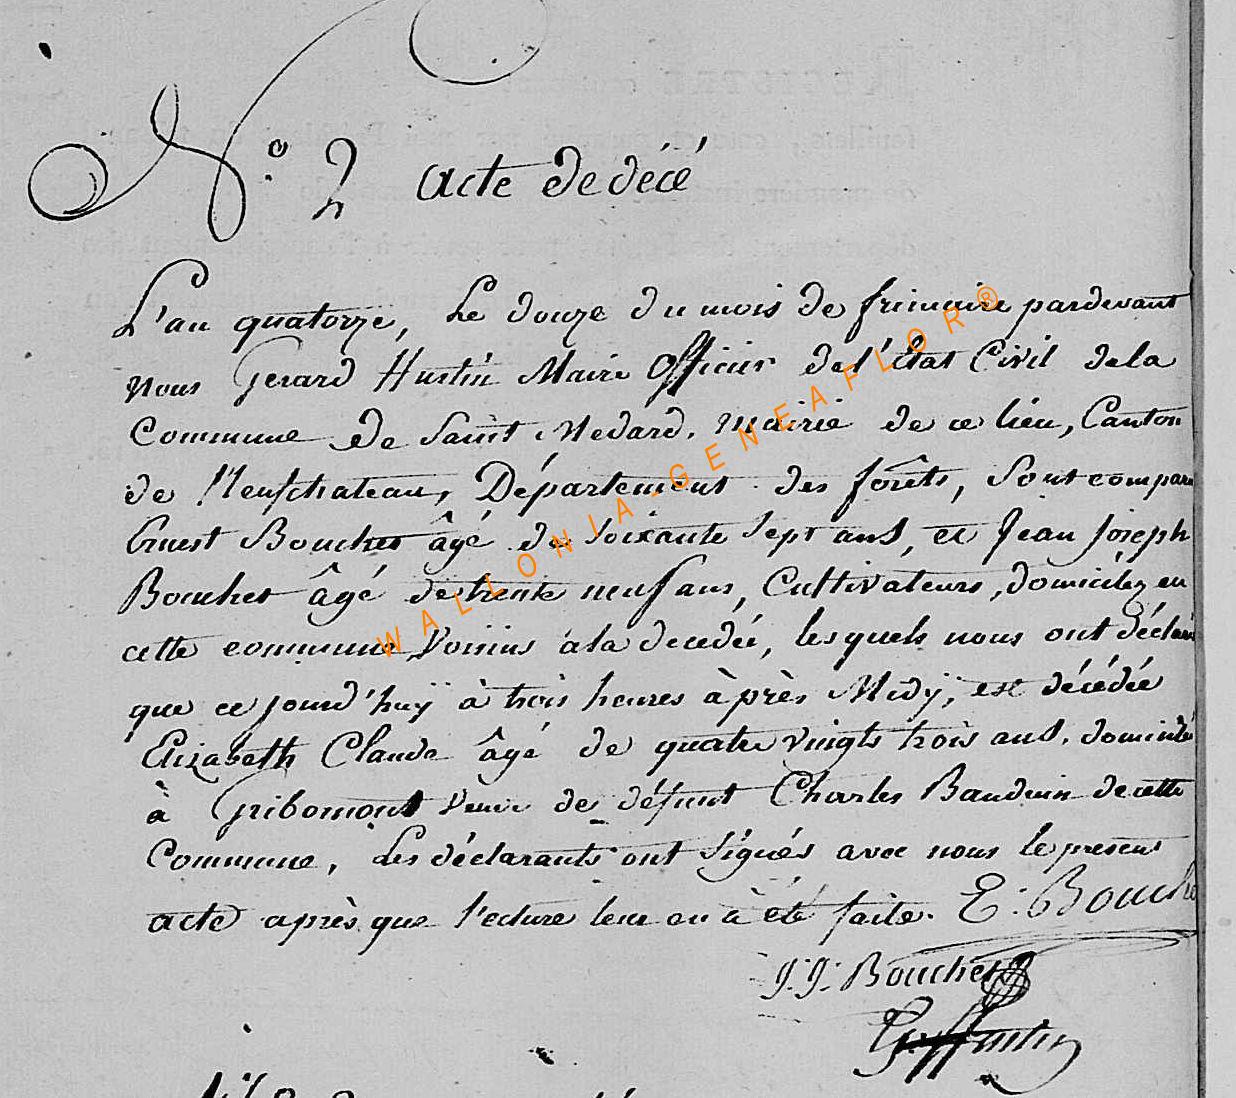 N.º 2 acte de décé
L'an quatorze, Le douze du mois de frimaire pardevant
nous Gerard Hustin Maire Officier de l'état Civil dela
Commune de Saint Medard, mairie de ce lieu, Canton
de Neufchateau, Département des forêts, Sont compara
Ernest Bouchet âgé de soixante sept ans, et Jean Joseph
Bouchet âgé de trente neuf ans, Cultivateurs, domiciléz en
cette commune Voisins à la decedée, lesquels nous ont déclaré
que ce jourd'huÿ à trois heures après Midÿ, est décédée
Elizabeth Claude âgé de quatre vingts trois ans, domicilé
à Gribomont veuve de défunt Charles Baudouin de cette
Commune, Les déclarants ont signés avec nous le present
acte après que l'ecture leur en à été faite. E. Bouche
J. J. Bouchet
G. Hustin
WALLONIA-GENEAFLOR®